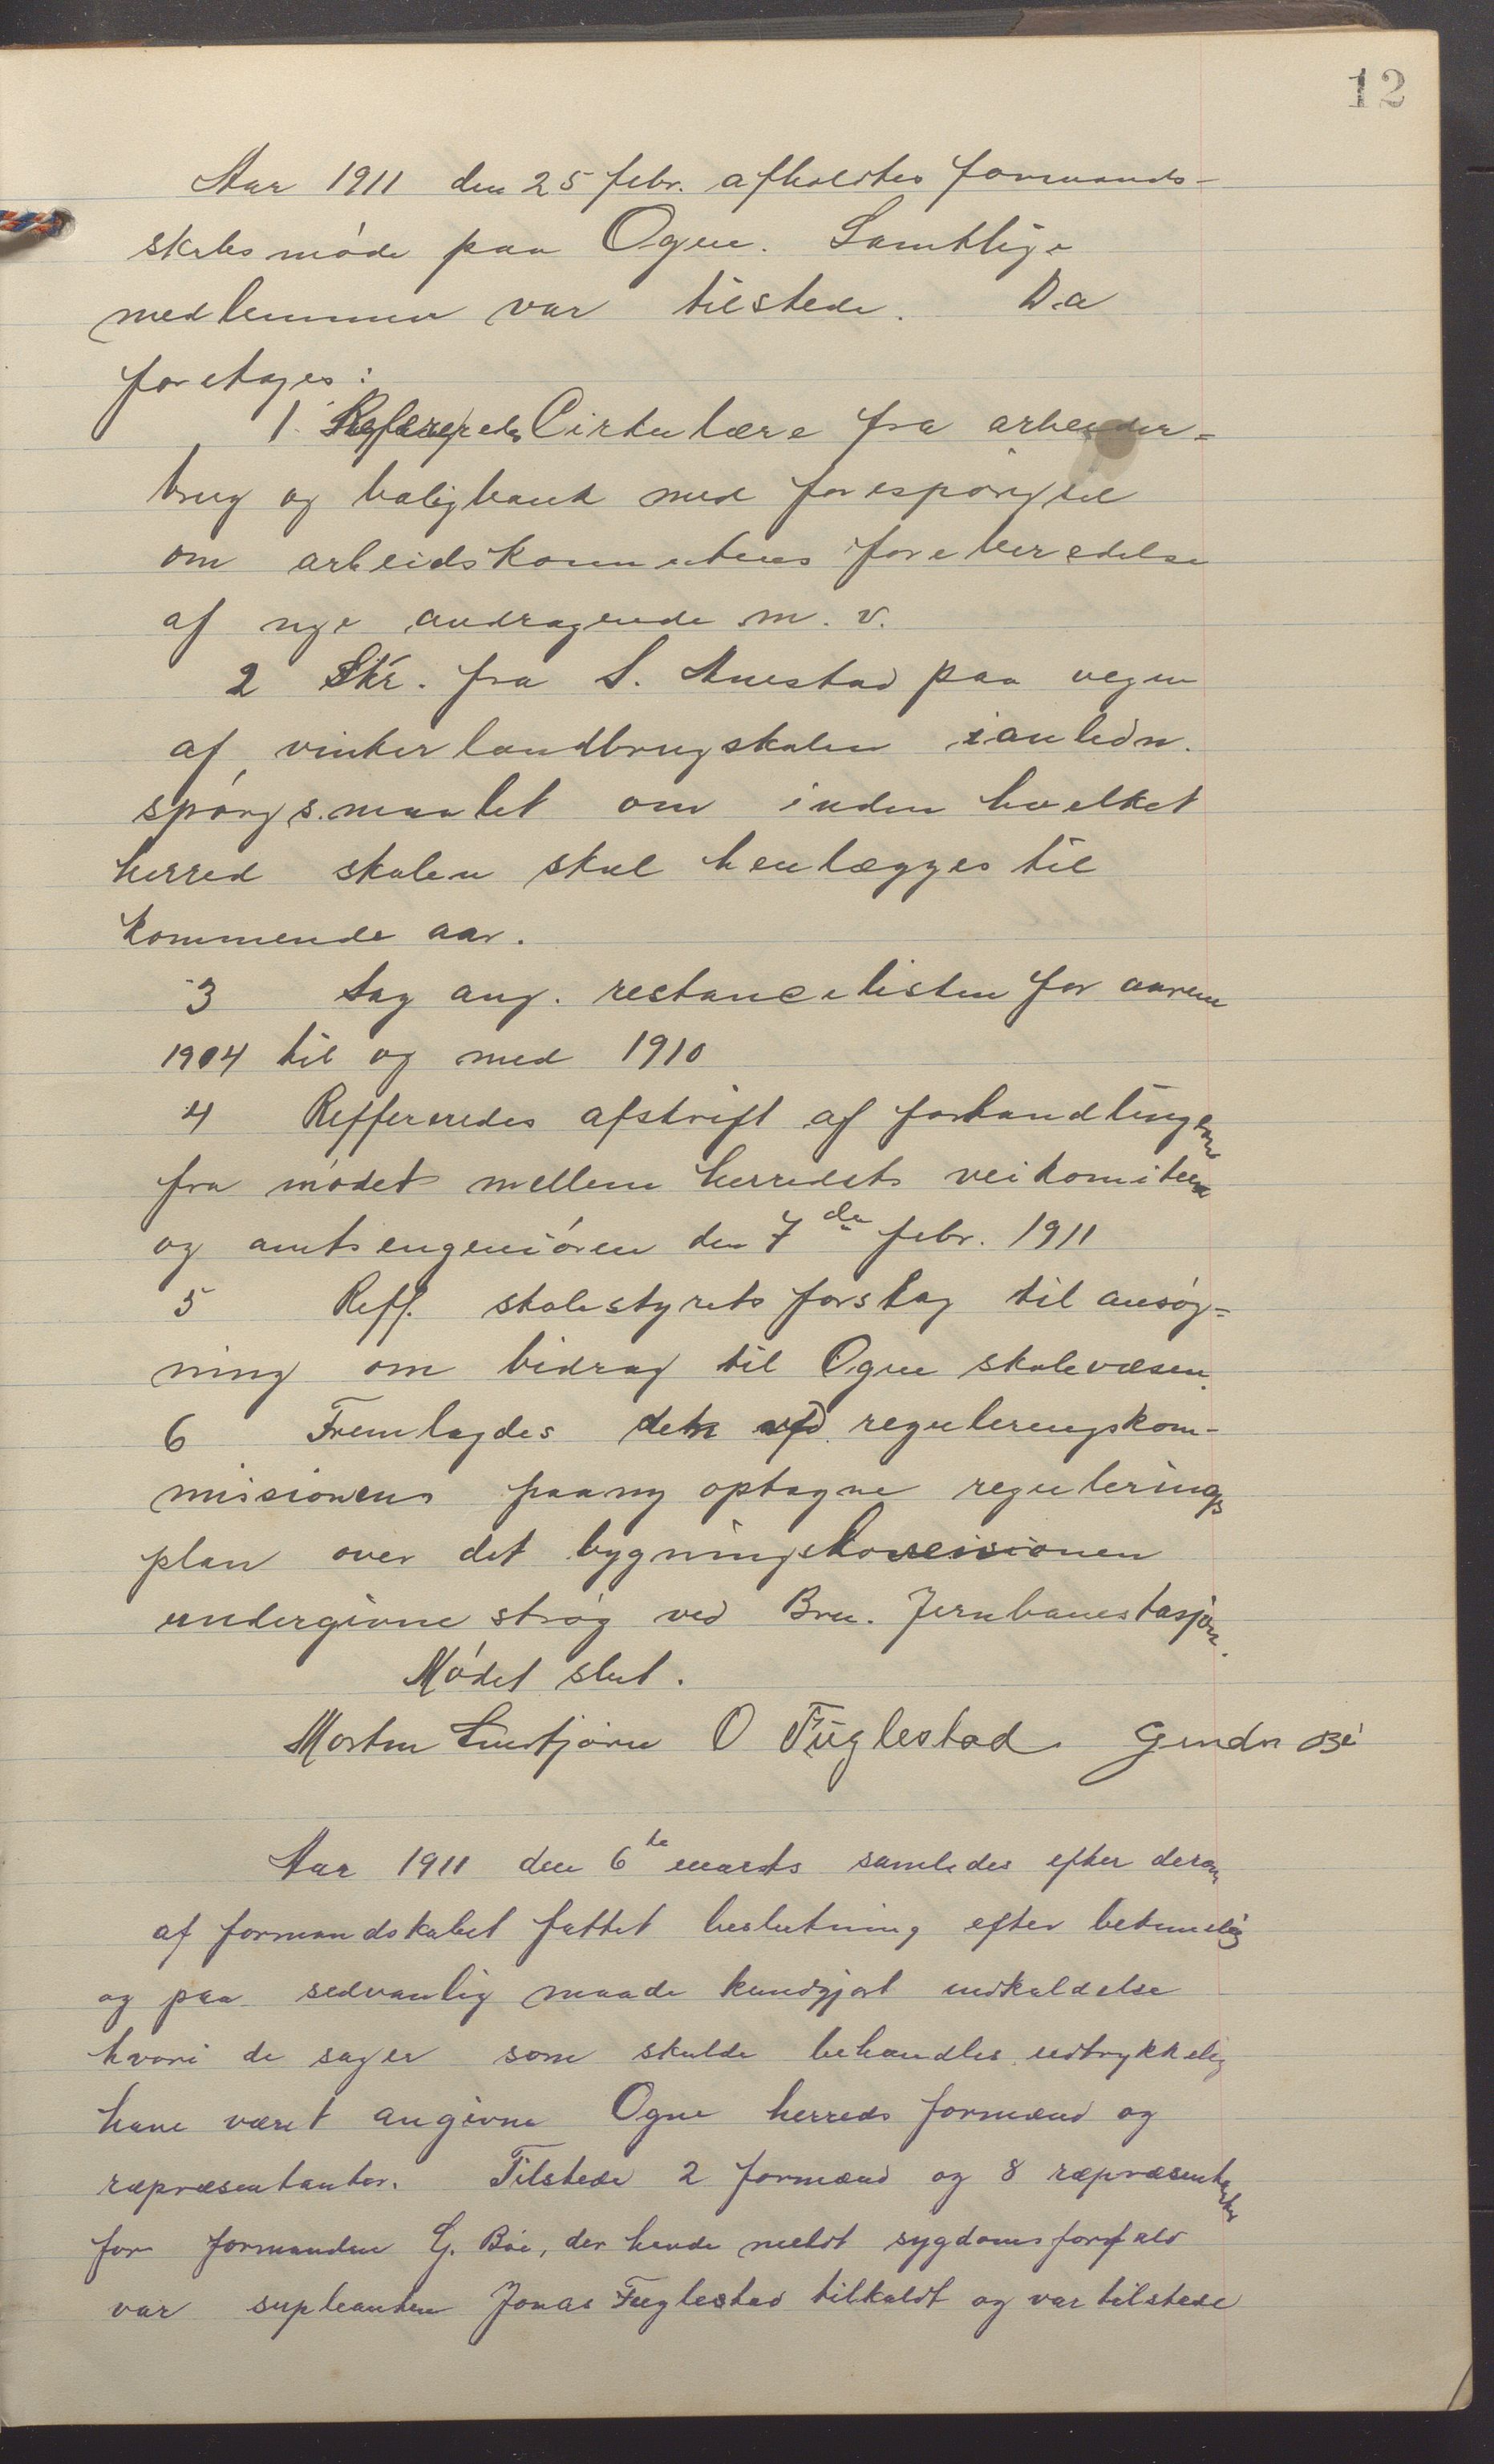 12
Aar 1911 den 25 febr. afholdtes formands-
skabsmøde paa Ogne. Samtlige
medlemmer var tilstede. Da
foretages:
1. Refereredes Cirkulære fra arbeider=
brug og boligbank med forespørgsel
om arbeidskomiteens foreberedelse
af nye andragende m. v.
2 Skr. fra S. Auestad paa vegne
af vinterlandbrugskolen ianledn.
spørgs.maalet om inden hvelket
herred skolen skal henlægges til
kommende aar.
3 Sag ang. restancelisten for aarene
1904 til og med 1910
4 Reffereredes afskrift af forhandlingene
fra mødet mellem herredets veikomiteen
og amtsengeniøren den 7de febr. 1911
5 Reff. skolestyrets forslag til ansøg=
ning om bidrag til Ogne skolevæsen.
6 Fremlagdes den af reguleringskom-
missionens paany optagne regulerings
plan over det bygnings
undergivne strøg ved Bru. Jernbanestasjon.
Mødet slut.
Morten O Fuglestad
Aar 1911 den 6te marts samledes efter derom
af formandskabet fattet beslutning efter betimelig
og paa sedvanlig maade kundgjort indkaldelse
hvori de sager som skulde behandles udtrykkelig
have været angivne Ogne herreds formænd og
repræsentanter. Tilstede 2 formænd og 8 repræsentanter
for formanden G. Bøe, der havde meldt sygdomsforfald
var supleanten Jonas Fuglestad tilkaldt og var tilstede